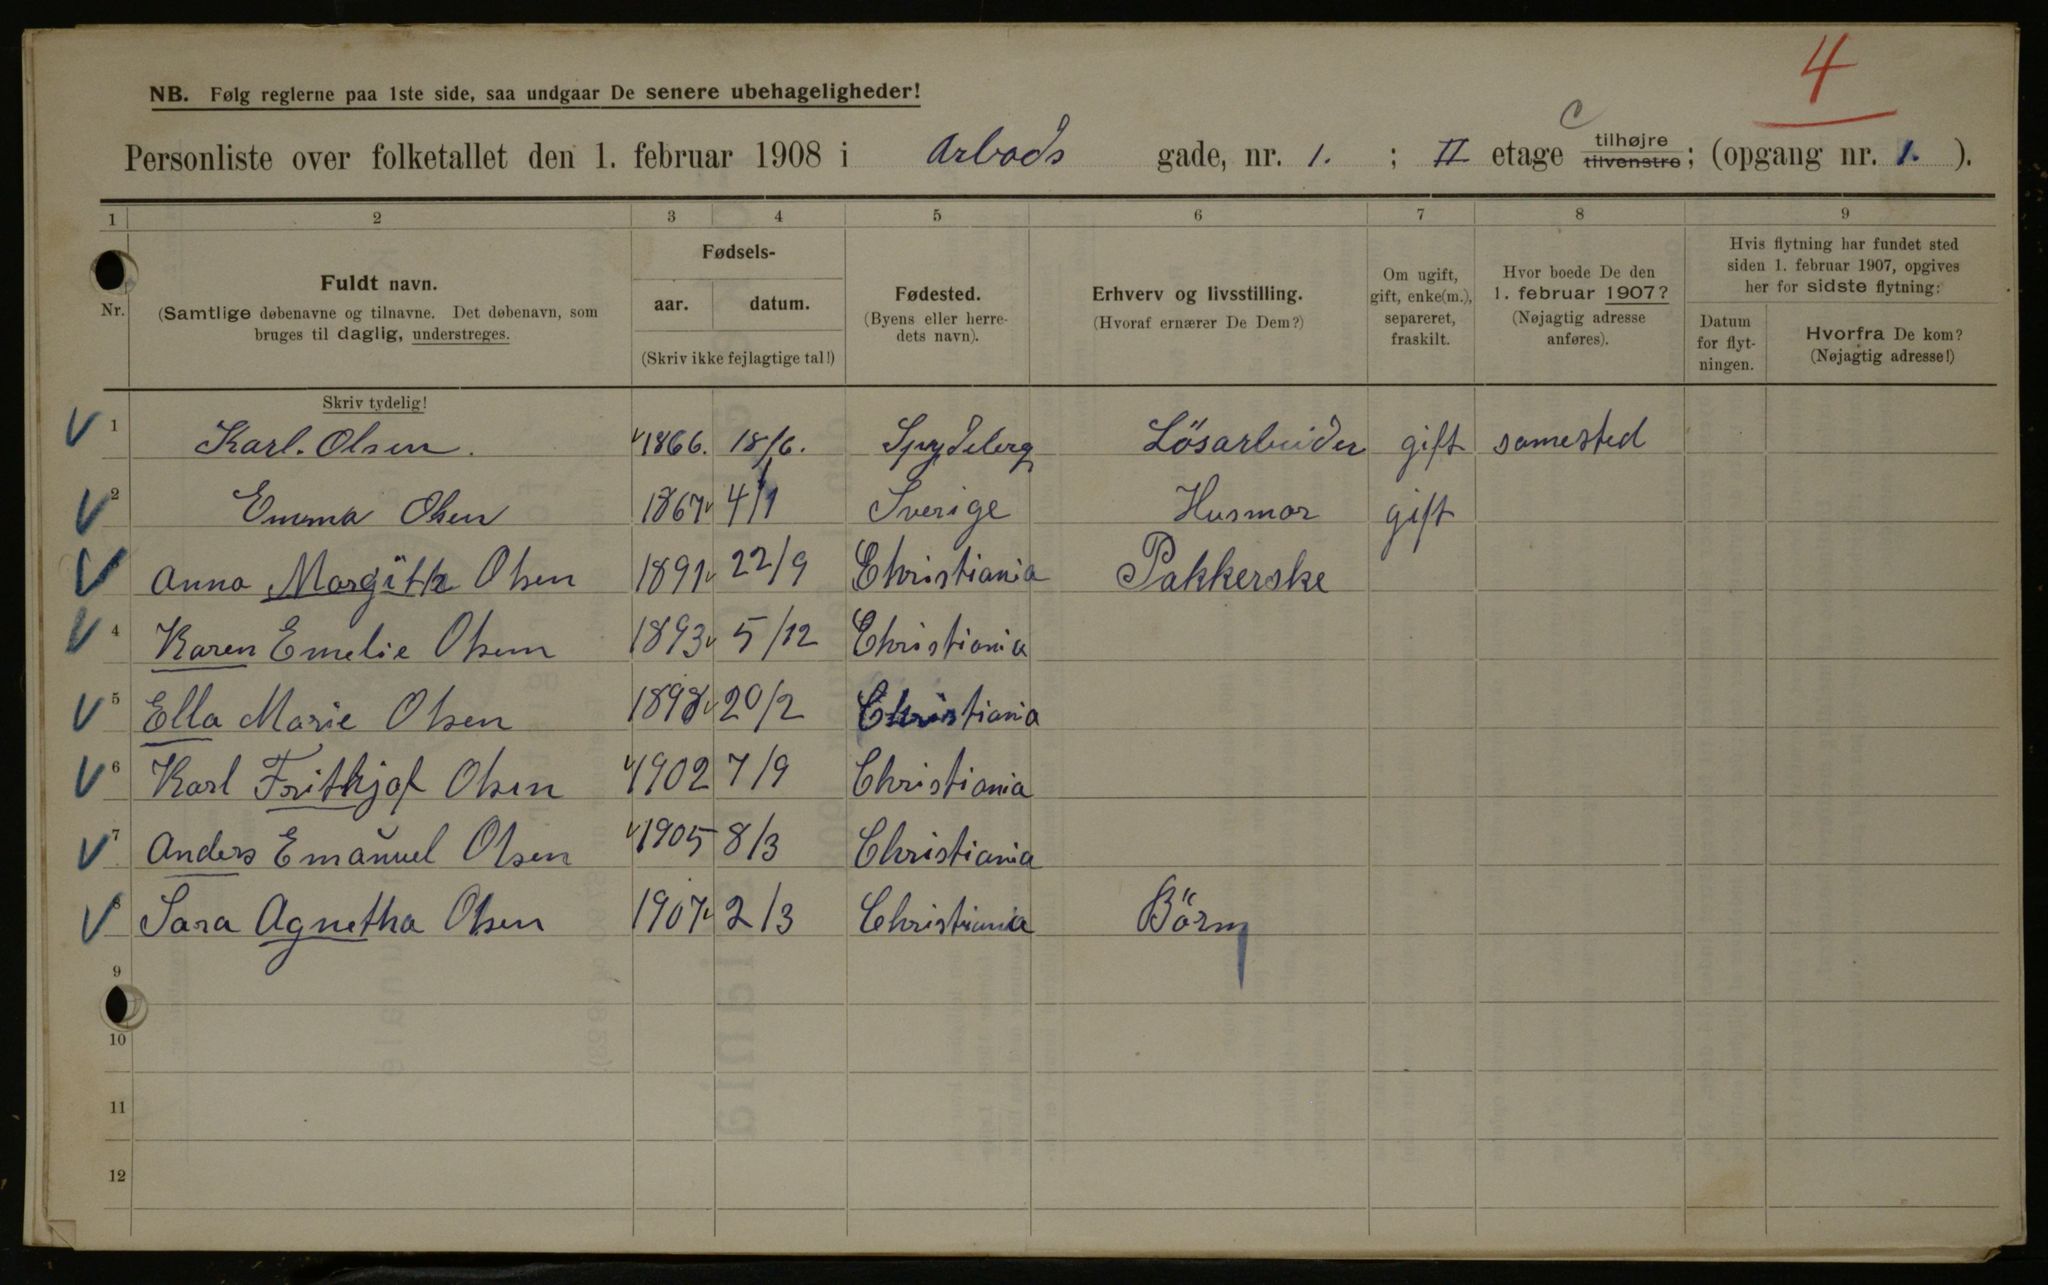 4
NB. Følg reglerne paa 1ste side, saa undgaar De senere ubehageligheder!
Personliste over folketallet den 1. februar 1908 i Arbods gade, nr. 1. ; II etage C tilhøjre tilvenstre; (opgang nr. 1. ).
1 2 3 4 5 6 7 8 9
Nr.
Fuldt navn.
(Samtlige døbenavne og tilnavne. Det døbenavn, som
bruges til daglig, understreges.
Fødsels-
aar. datum.
(Skriv ikke fejlagtige tal!)
Fødested.
(Byens eller herre-
dets navn).
Erhverv og livsstilling.
(Hvoraf ernærer De Dem?)
Om ugift,
gift, enke(m.),
separeret,
fraskilt.
Hvor boede De den
1. februar 1907?
(Nøjagtig adresse
anføres).
Hvis flytning har fundet sted
siden 1. februar 1907, opgives
her for sidste flytning:
Datum
for flyt-
ningen.
Hvorfra De kom?
(Nøjagtig adresse!)
Skriv tydelig!
1 Karl. Olsen. 1866. 18/6. Spydeberg Lösarbeider gift samested
2 Emma Olsen 1867 4/1 Sverige Husmor gift
Anna Margith Olsen 1891 22/9 Christiania Pakkerske
4 Karen Emelie Olsen 1893 5/12 Christiania
5 Ella Marie Olsen 1898 20/2 Christiania
6 Karl Frithjof Olsen 1902 7/9 Christiania
7 Anders Emanuel Olsen 1905 8/3 Christiania
8 Sara Agnetha Olsen 1907 2/3 Christiania Börn
9
10
11
12